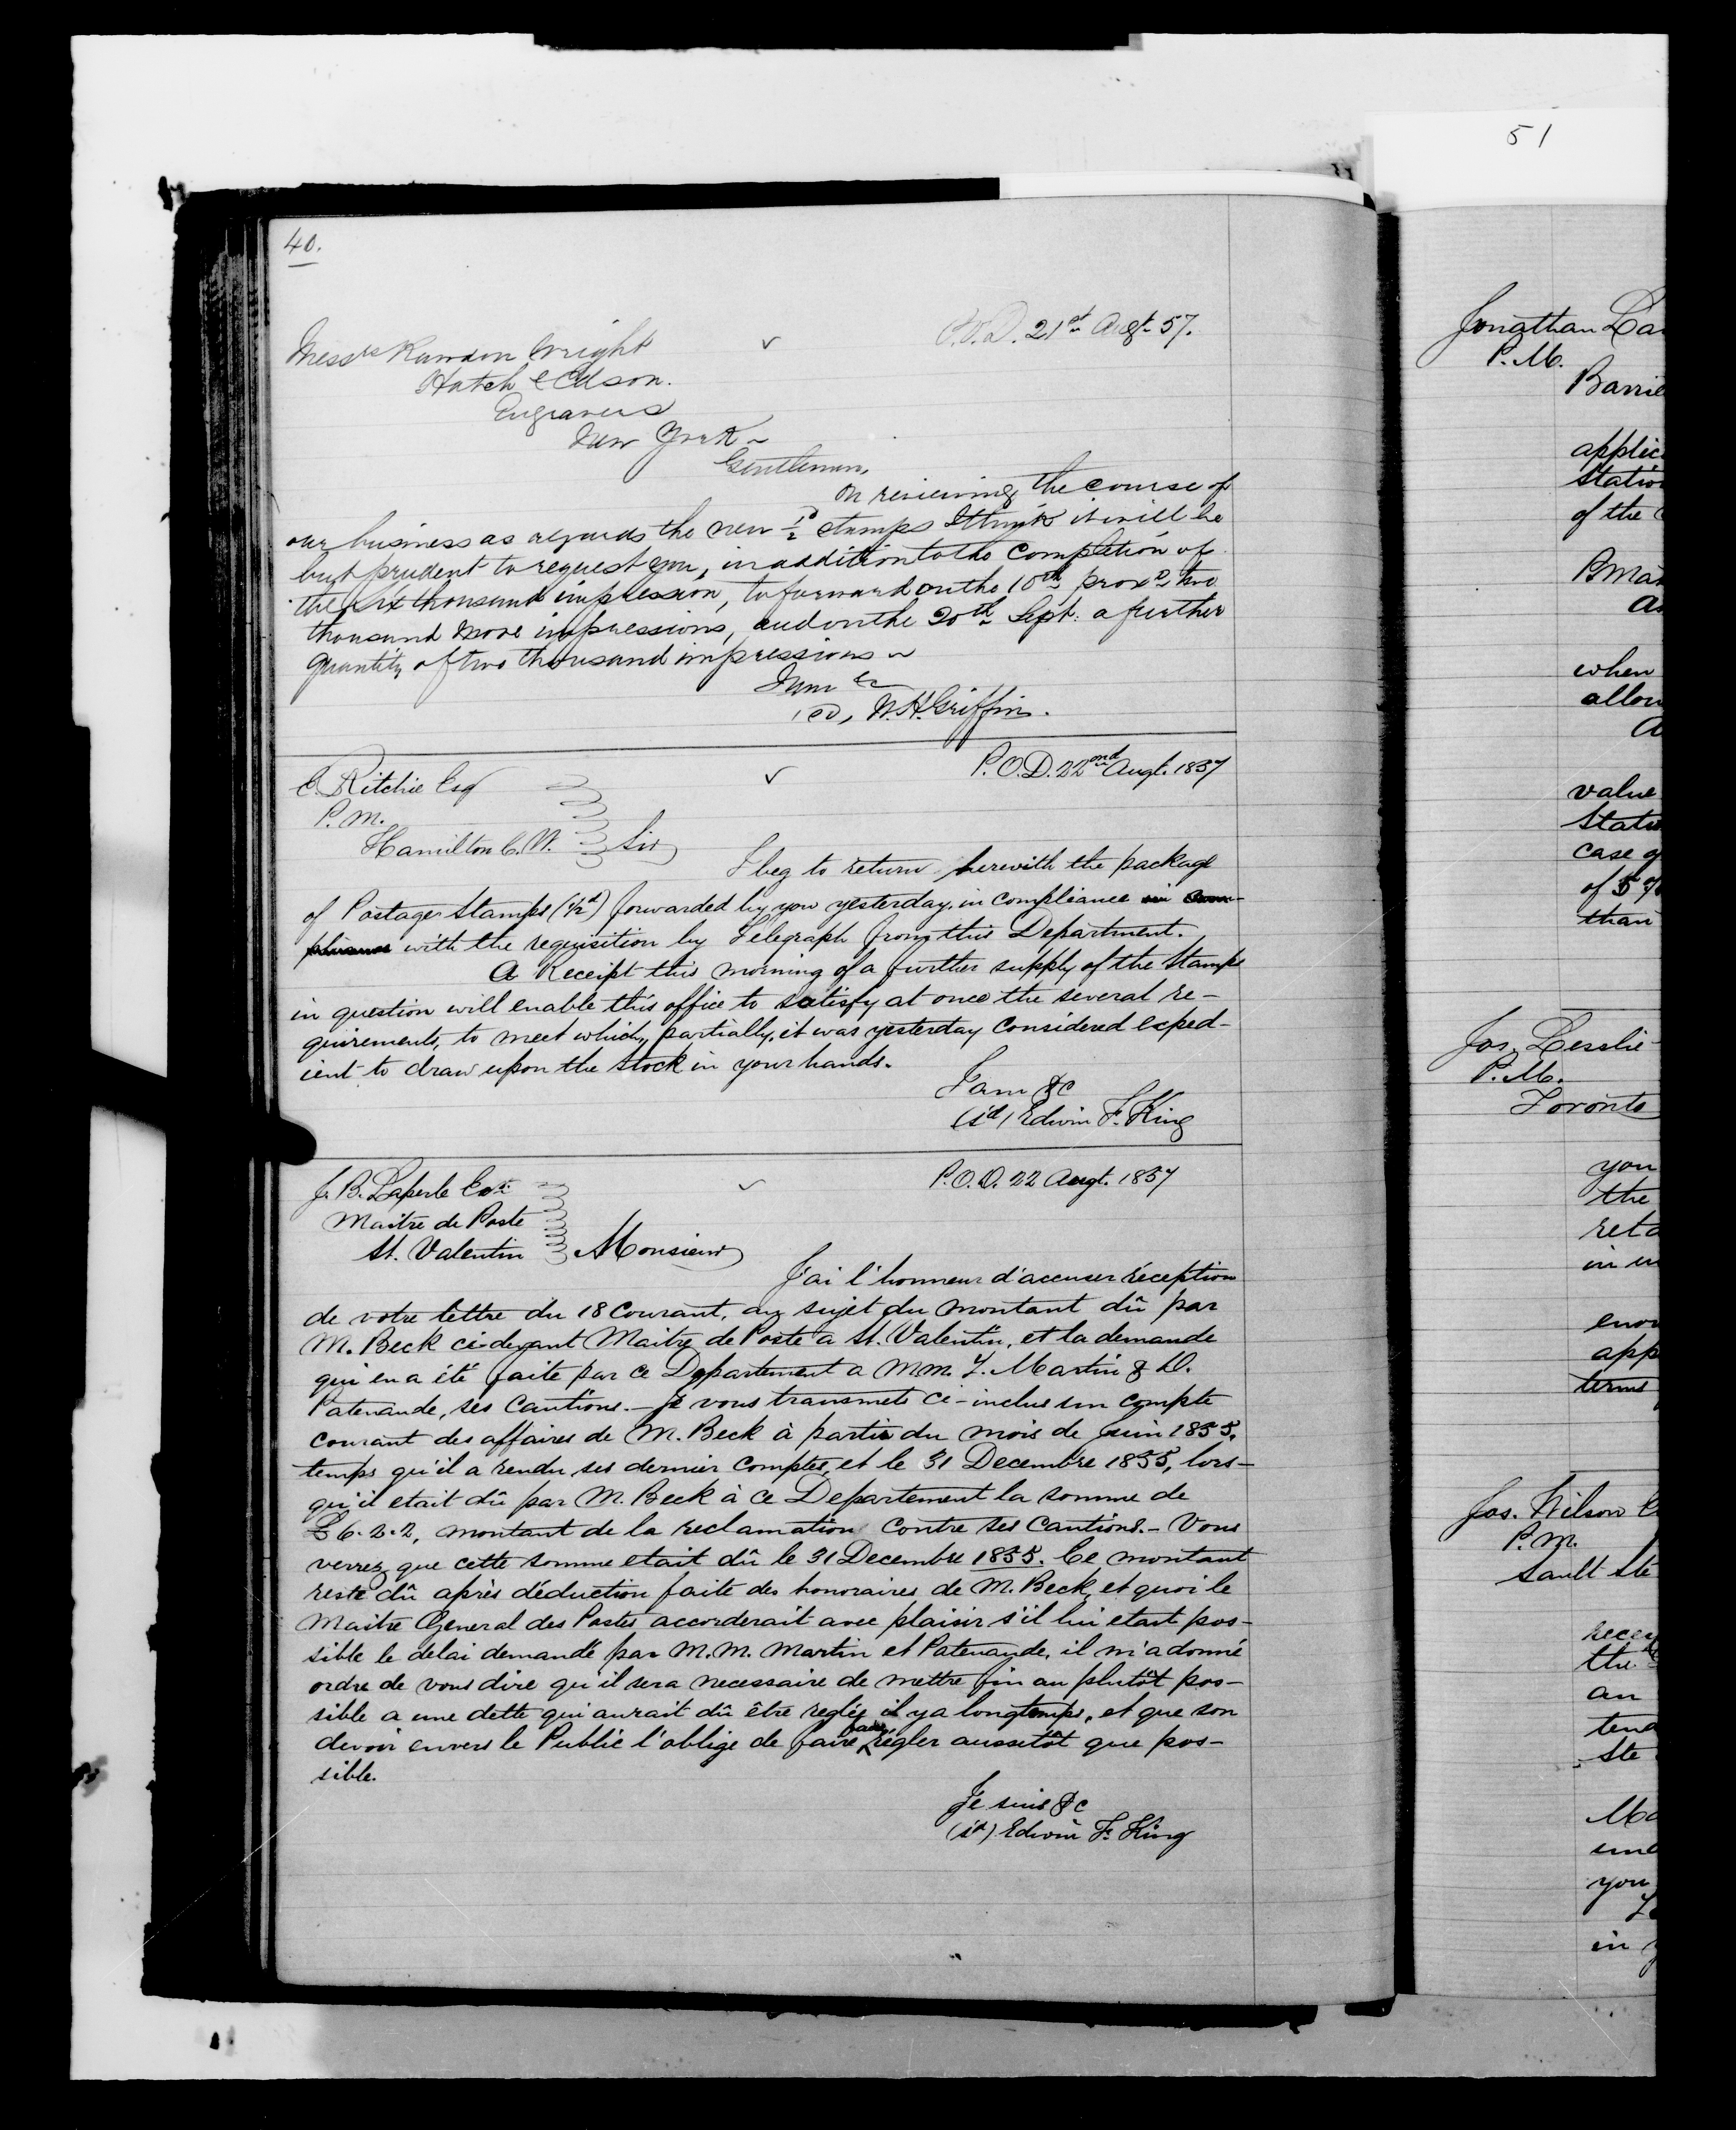 51
40.
P.O.D. 21st Augt. 57.
Messrs Rawdon Wright
Hatch & Edson.
Engravers
New York
Gentlemen,
On reviewing the course of
our business as regards the new ½d stamps I think it will be
but prudent to request you, in addition to the completion of
the six thousand impression, to forward on the 10th proxo two
thousand more impressions, and on the 20th Sept. a further
quantity of two thousand impressions
I am &c
(sd) W.H. Griffin.
P.O.D. 22nd Augt. 1857
E. Ritchie Esq
P.M.
Hamilton C.W.
Sir
I beg to return herewith the package
of Postage Stamps (½d) forwarded by you yesterday in compliance in com-
pliance with the requisition by Telegraph from this Department.
A Receipt this morning of a further supply of the Stamps
in question will enable this office to satisfy at once the several re-
quirements, to meet which, partially, it was yesterday considered exped-
ient to draw upon the stock in your hands.
I am &c
(sd) Edwin F. King
P.O.D. 22 Augt. 1857
J. B. Laperle Esqr
Maitre de Poste
St. Valentin
Monsieur
J'ai l'honneur d'accuser réception
de votre lettre du 18 Courant, au sujet du montant dû par
M. Beck ci-devant Maitre de Poste a St. Valentin, et la demande
qui en a été faite par ce Departement a MM. J. Martin & D.
Patenaude, ses Cautions. - Je vous transmets ci-inclus un compte
courant des affaires de M. Beck à partir du mois de Juin 1855,
temps qu'il a rendu ses dernier Comptes, et le 31 Decembre 1855, lors-
qu'il etait dû par M. Beck à ce Departement la somme de
£6.2.2, montant de la reclamation contre ses Cautions. - Vous
verrez que cette somme etait dû le 31 Decembre 1855. Ce montant
reste dû après déduction faite des honoraires de M. Beck, et quoi le
Maitre General des Postes accorderait avec plaisir s'il lui etait pos-
sible le delai demandé par M.M. Martin et Patenaude, il m'a donné
ordre de vous dire qu'il sera necessaire de mettre fin au plutôt pos-
sible a une dette qui aurait dû être reglée il y a longtemps, et que son
devoir envers le Public l'oblige de faire régler aussitôt que pos-
sible.
Je suis &c
(sd) Edwin F. King
Jonathan
P.M.
Barrie
applic
station
of the
when
allow
value
Stat
case
of 5
than
Jos. Lesslie
P.M.
Toronto
you
the
in
app
terms
Jos. Wilson
P.M.
Sault Ste
the
an
tend
Ste
you
in